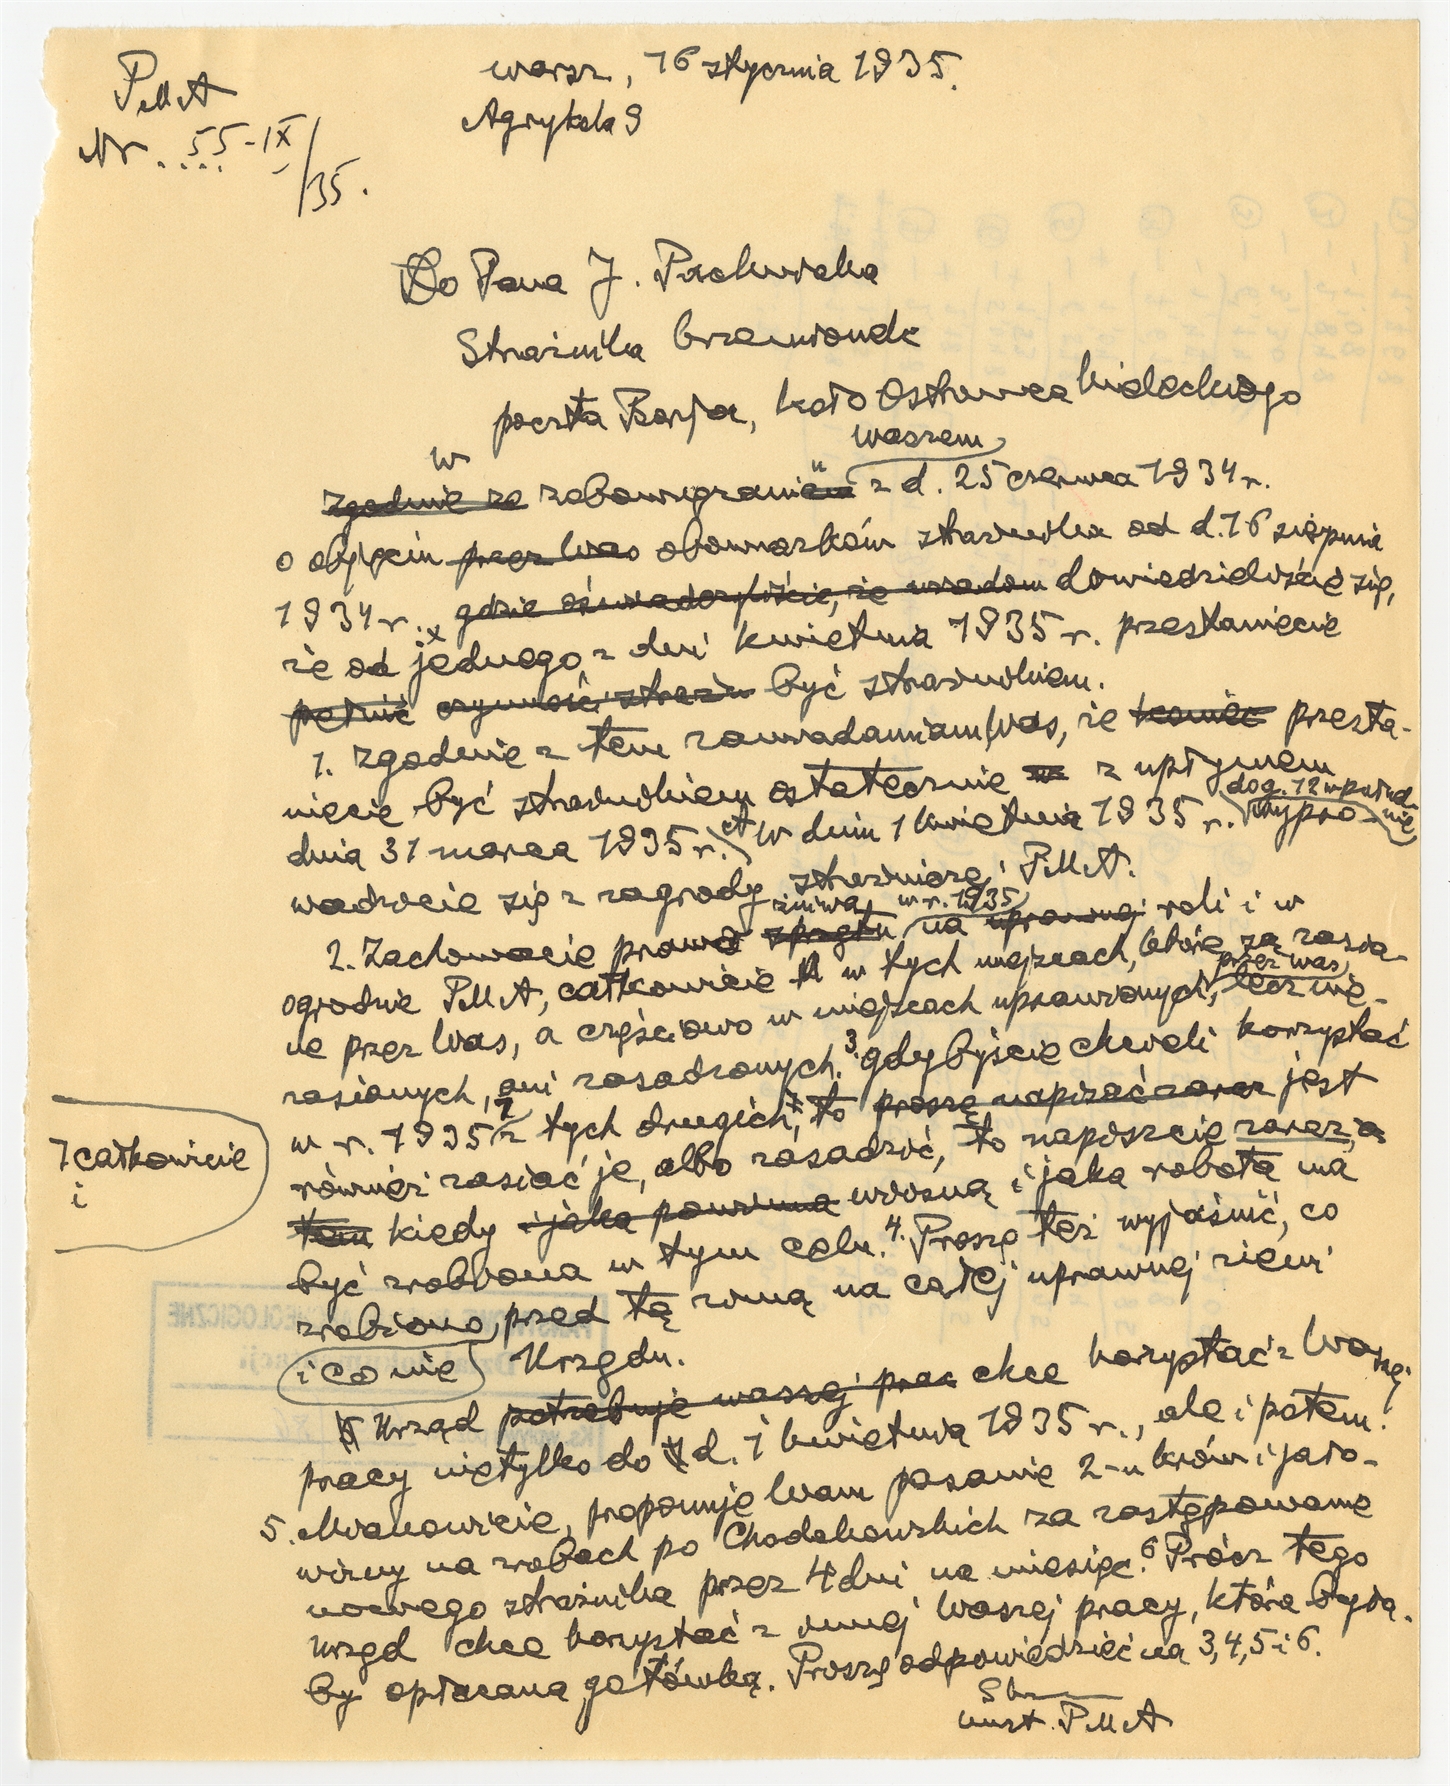 PMA
Nr. 55-IX/35.
Warsz., 16 stycznia 1935.
Agrykola 9
Do Pana J. Pachniaka
Strażnika Krzemionek
poczta Borja, koło Ostrowca kieleckiego
w
waszem
zgodnie ze zobowiązaniu z d. 25 czerwca 1934 r.
o objęciu przez Was obowiązków strażnika od d. 16 sierpnia
1934 r. gdzie oświadczyliście, że wiadom dowiedzieliście się,
że od jednego z dni kwietnia 1935 r. przestaniecie
pełnić czynność straży być strażnikiem.
1. Zgodnie z tem zawiadamiam Was, że koniec przesta-
niecie być strażnikiem ostatecznie z upływem
dog. 12 w połud-
dnia 31 marca 1935 r. W dniu 1 kwietnia 1935 r. wypro- nie
wadzicie się z zagrody strażniczej PMA.
żniwa w r. 1935
2. Zachowacie prawo sprzętu na uprawnej roli i w
ogrodzie PMA, całkowicie w tych miejscach, które są zasia-
przez was,
ne przez Was, a częściowo w miejscach uprawionych, lecz nie-
zasianych, ani zasadzonych. 3. gdybyście chcieli korzystać
w r. 1935 z tych drugich, to proszę napisać zaraz jest
7 całkowicie
i
również zasiać je, albo zasadzić, to napiszcie zaraz, a
tem kiedy i jaka powinna wiosną i jaka robota ma
być zrobiona w tym celu. 4. Proszę też wyjaśnić, co
zrobiono przed tą zimą na całej uprawnej ziemi
i co nie Urzędu.
Urząd potrzebuje waszej prac chce korzystać z Waszej
pracy nietylko do d. 1 kwietnia 1935 r., ale i potem.
5. Mianowicie, proponuję Wam pasanie 2-u krów i jało-
wizny na zrobach po Chodakowskich za zastępowanie
nowego strażnika przez 4 dni na miesiąc. 6 Prócz tego
Urząd chce korzystać z innej Waszej pracy, która była-
by opłacana gotówką. Proszę odpowiedzieć na 3, 4, 5 i 6.
kust. PMA